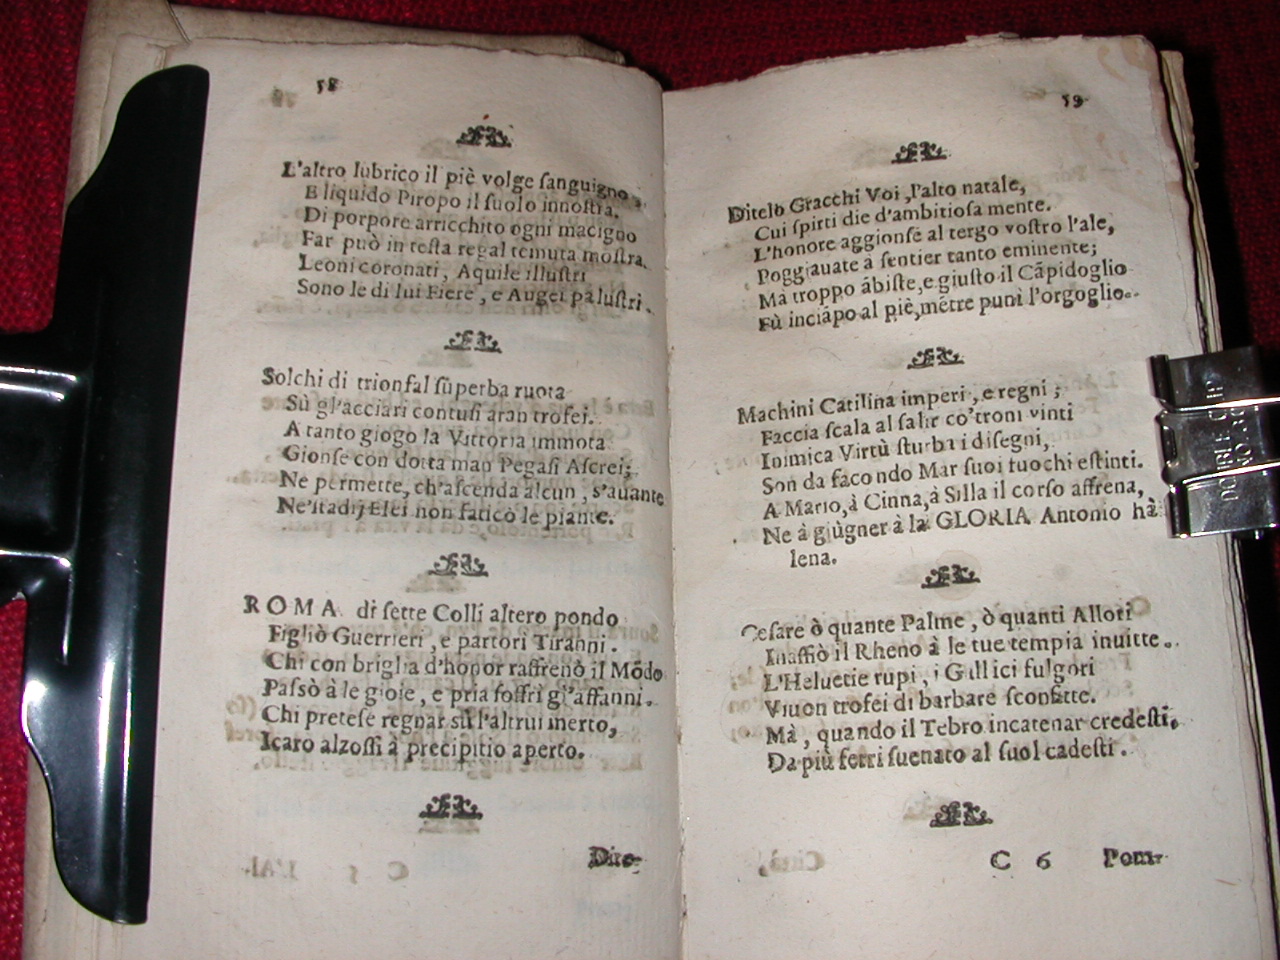 58
L'altro lubrico il piè volge ſanguigno,
E liquido Piropo il ſuolo innoſtra.
Di porpore arricchito ogni macigno
Far può in teſta regal temuta moſtra.
Leoni coronati, Aquile illuſtri
Sono le di lui Fiere, e Augei paluſtri.
Solchi di trionfal ſuperba ruota
Sù gl'acciari contuſi aran trofei.
A tanto giogo la Vittoria immota
Gionſe con dotta man Pegaſi Aſcrei;
Ne permette, ch'aſcenda alcun, s'auante
Ne'ſtadij Elei non faticò le piante.
ROMA di ſette Colli altero pondo
Figliò Guerrieri, e partorì Tiranni.
Chi con briglia d'honor raffrenò il Mōdo
Paſsò à le gioie, e pria ſoffrì gl'affanni.
Chi preteſe regnar sù l'altrui merto,
Icaro alzoſſi à precipitio aperto.
Dite-
59
Ditelo Gracchi Voi, l'alto natale,
Cui ſpirti die d'ambitioſa mente.
L'honore aggionſe al tergo voſtro l'ale,
Poggiauate à ſentier tanto eminente;
Mà troppo ábiſte, e giuſto il Cāpidoglio
Fù inciápo al piè, métre punì l'orgoglio.
Machini Catilina imperi, e regni;
Faccia ſcala al ſalir co'troni vinti
Inimica Virtù ſturba i diſegni,
Son da facondo Mar ſuoi fuochi eſtinti.
A Mario, à Cinna, à Silla il corſo affrena,
Ne à giùgner à la GLORIA Antonio hà
lena.
Ceſare ò quante Palme, ò quanti Allori
Inaffiò il Rheno à le tue tempia inuitte.
L'Heluetie rupi, i Gallici fulgori
Viuon trofei di barbare ſconfitte.
Mà, quando il Tebro incatenar credeſti,
Da più ferri ſuenato al ſuol cadeſti.
C 6 Pom-